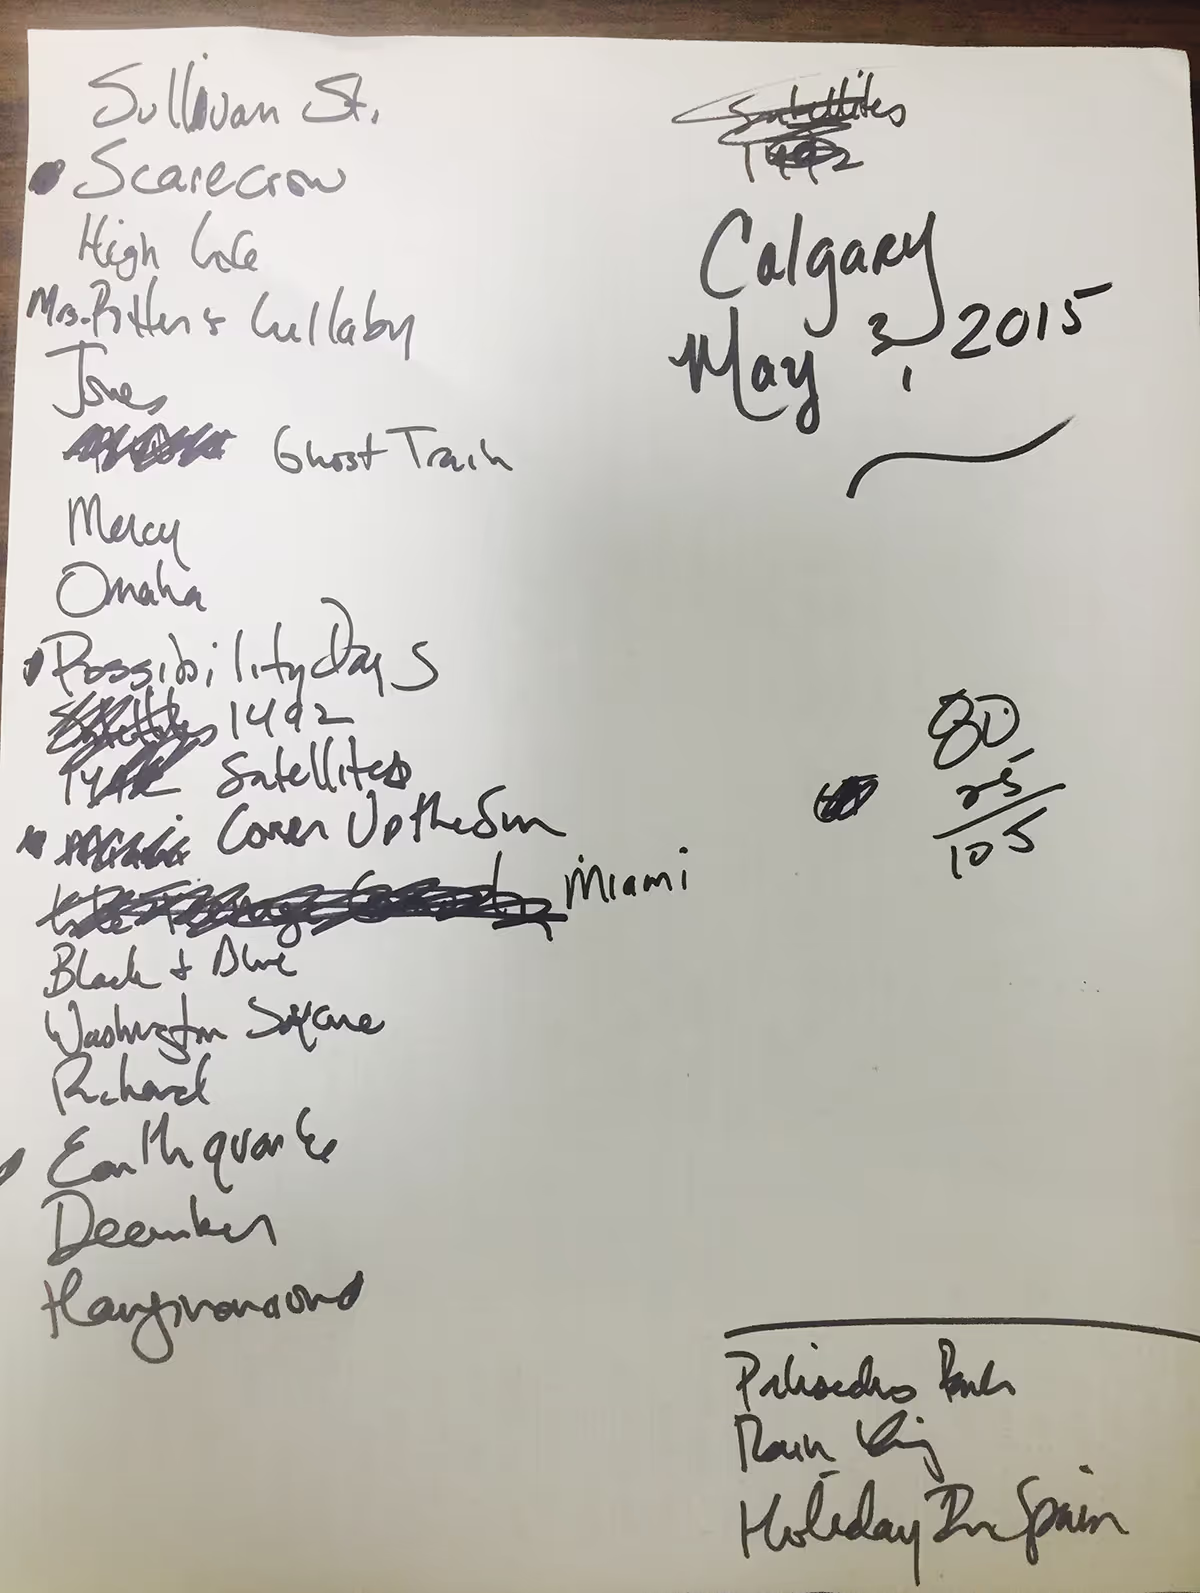 Sullivan St.
Scarecrow
High Life
Mrs. Potter's Lullaby
Jones
Ghost Train
Mercy
Omaha
Possibility Days
Satellites 1492
1492 Satellites
Miami Cover Up the Sun
Miami
Black & Blue
Washington Square
Richard
Earthquake
December
Hanginaround
Satellites
1492
Calgary
May 3, 2015
80
25
105
Palisades Park
Rain King
Holiday In Spain